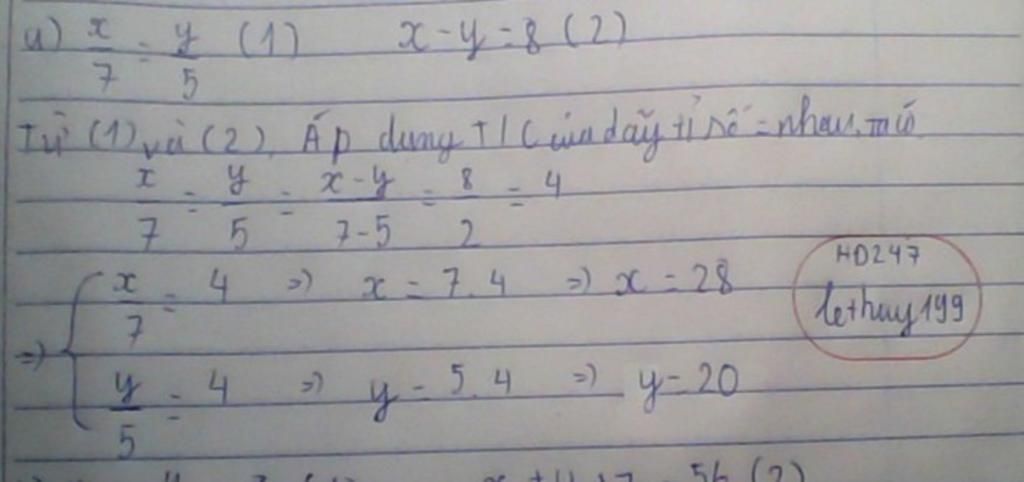 a) x/7 = y/5 (1) x - y = 8 (2)
Từ (1) và (2). Áp dụng T/C của dãy tỉ số = nhau, ta có
x/7 = y/5 = x-y/7-5 = 8/2 = 4
x/7 = 4 => x = 7.4 => x = 28
=>
y/5 = 4 => y = 5.4 => y = 20
HD247
lethuy199
56 (2)